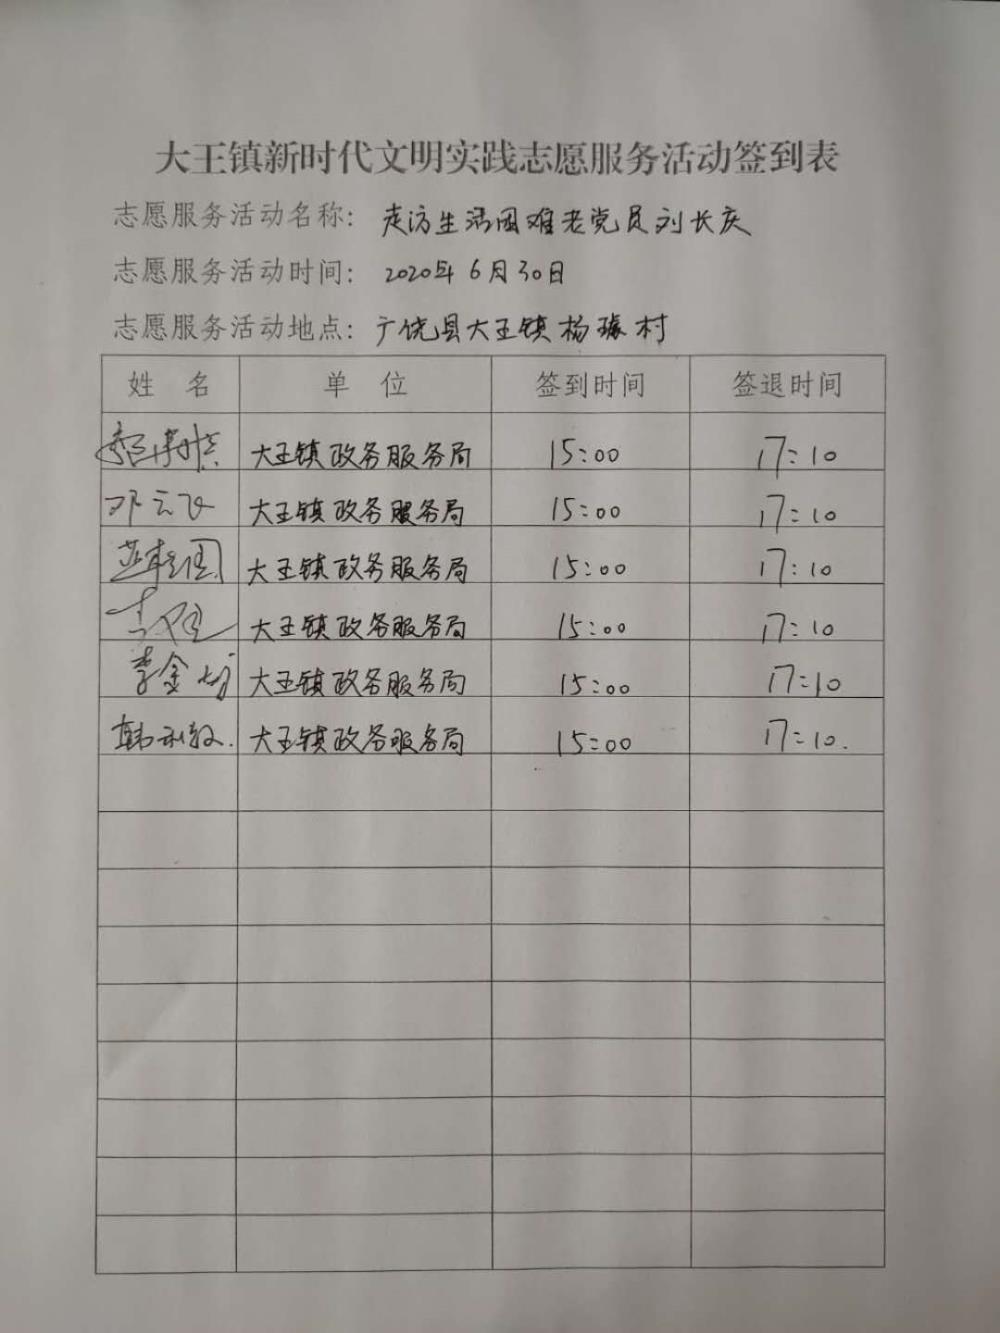 大王镇新时代文明实践志愿服务活动签到表
志愿服务活动名称：走访生活困难老党员刘长庆
志愿服务活动时间：2020年6月30日
志愿服务活动地点：广饶县大王镇杨璩村
姓 名 单 位 签到时间 签退时间
大王镇政务服务局 15:00 17:10
邓云飞 大王镇政务服务局 15:00 17:10
大王镇政务服务局 15:00 17:10
大王镇政务服务局 15:00 17:10
李金 大王镇政务服务局 15:00 17:10
韩利敏. 大王镇政务服务局 15:00 17:10.